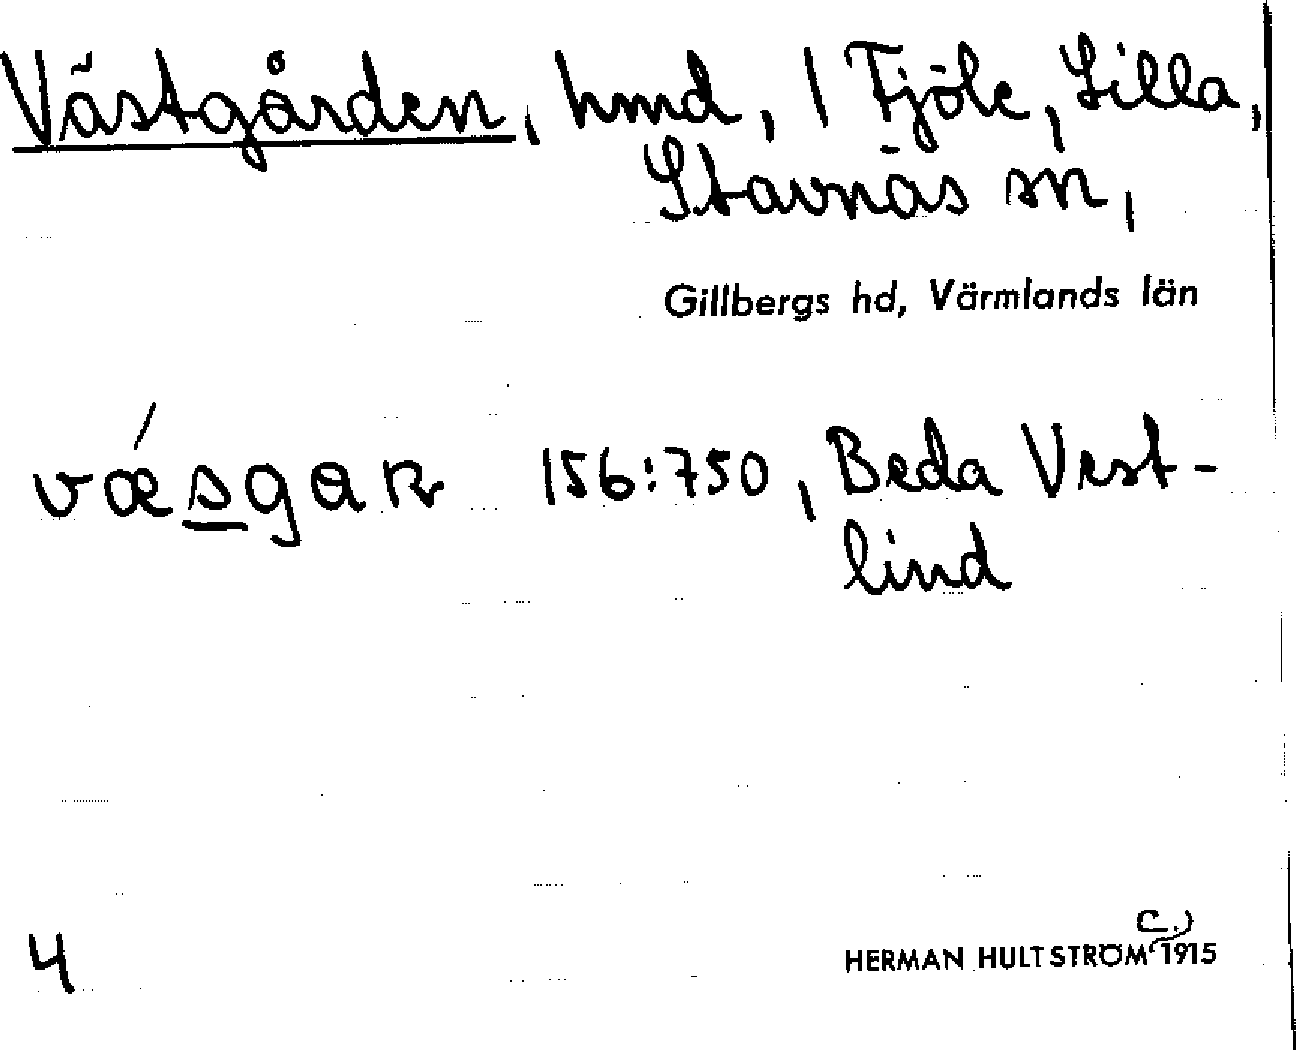 Västgården, hmd, 1 Fjöle, Lilla,
Stavnäs sn,
Gillbergs hd, Värmlands län
vǽsgaʀ 156:750, Beda Vest-
lind
4
(C.)
HERMAN HULTSTRÖM 1915